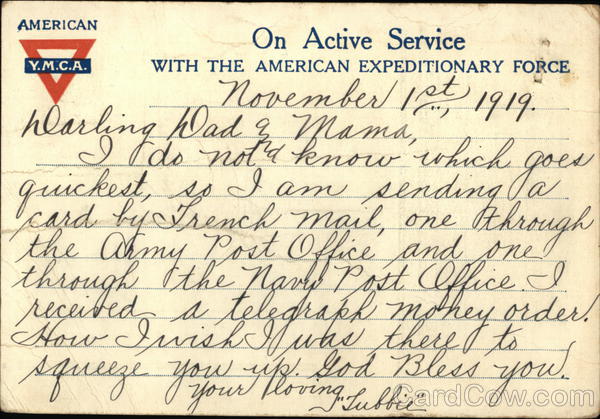 AMERICAN
Y.M.C.A.
On Active Service
WITH THE AMERICAN EXPEDITIONARY FORCE
November 1st, 1919.
Darling Dad & Mama,
I do not know which goes
quickest, so I am sending a
card by French mail, one through
the Army Post Office and one
through the Navy Post Office - I
received a telegraph money order.
How I wish I was there to
squeeze you up. God Bless you.
Your loving
"Tubbie"
CardCow.com